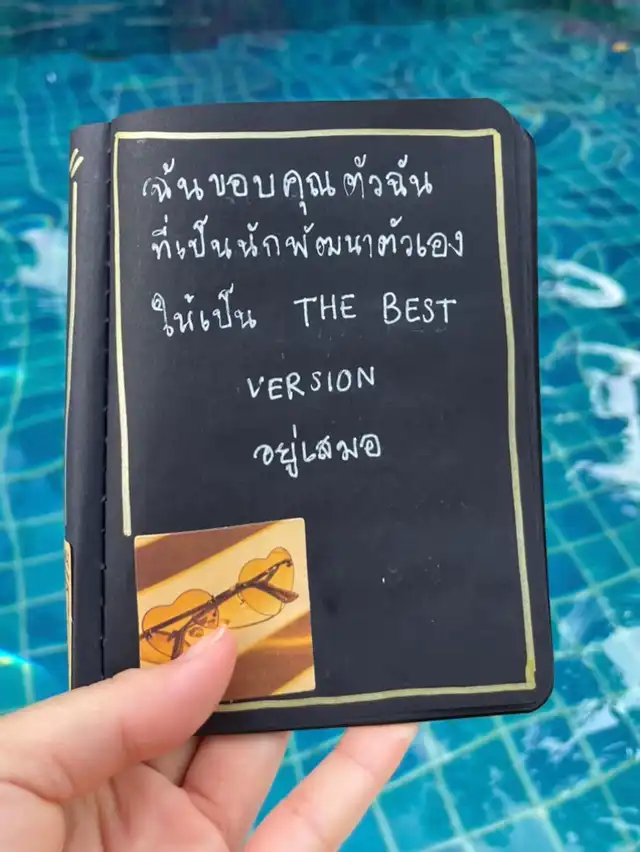 ฉันขอบคุณตัวฉัน
ที่เป็นนักพัฒนาตัวเอง
ให้เป็น THE BEST
VERSION
อยู่เสมอ